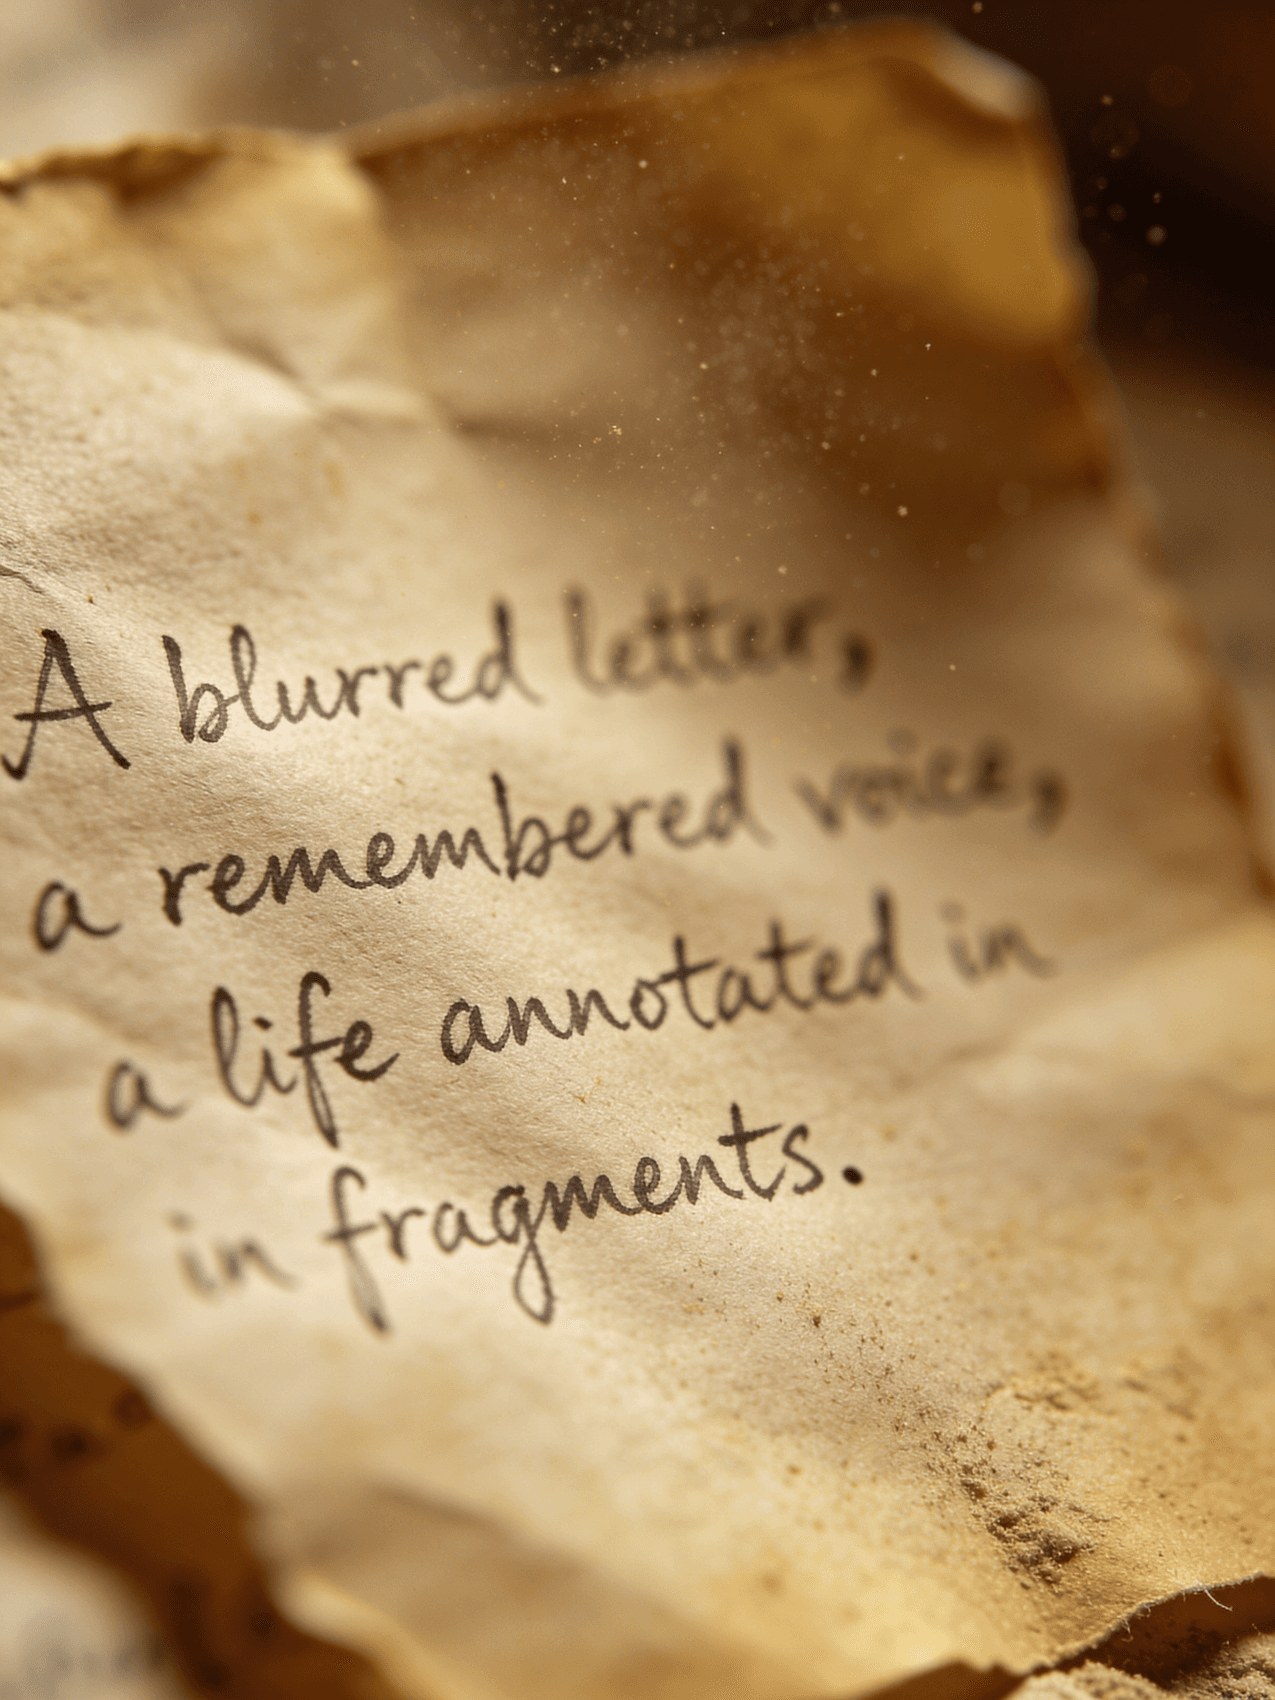 A blurred letter,
a remembered voice,
a life annotated in
in fragments.